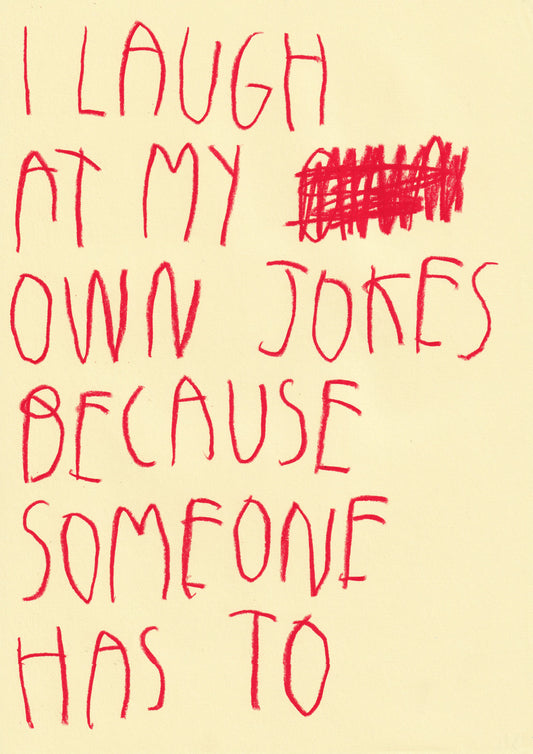 I LAUGH
AT MY
OWN JOKES
BECAUSE
SOMEONE
HAS TO